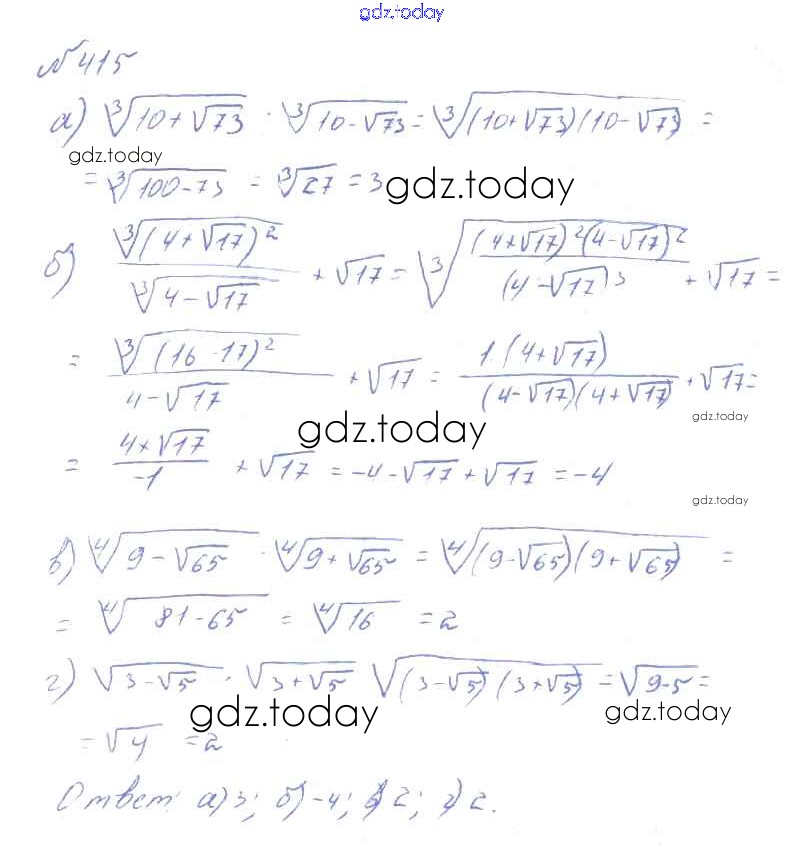 gdz.today
№ 415
а) ∛(10+√73) · ∛(10-√73) = ∛((10+√73)(10-√73)) =
gdz.today
= ∛(100-73) = ∛27 = 3 gdz.today
б) ∛((4+√17)²) / ∛(4-√17) + √17 = ∛((4+√17)²(4-√17)² / (4-√17)³) + √17 =
= ∛((16-17)²) / (4-√17) + √17 = 1·(4+√17) / ((4-√17)(4+√17)) + √17 =
gdz.today
gdz.today
= (4+√17) / -1 + √17 = -4-√17+√17 = -4
gdz.today
в) ∜(9-√65) · ∜(9+√65) = ∜((9-√65)(9+√65)) =
= ∜(81-65) = ∜16 = 2
г) √(3-√5) · √(3+√5) √((3-√5)(3+√5)) = √(9-5) =
gdz.today gdz.today
= √4 = 2
Ответ: а) 3; б) -4; в) 2; г) 2.